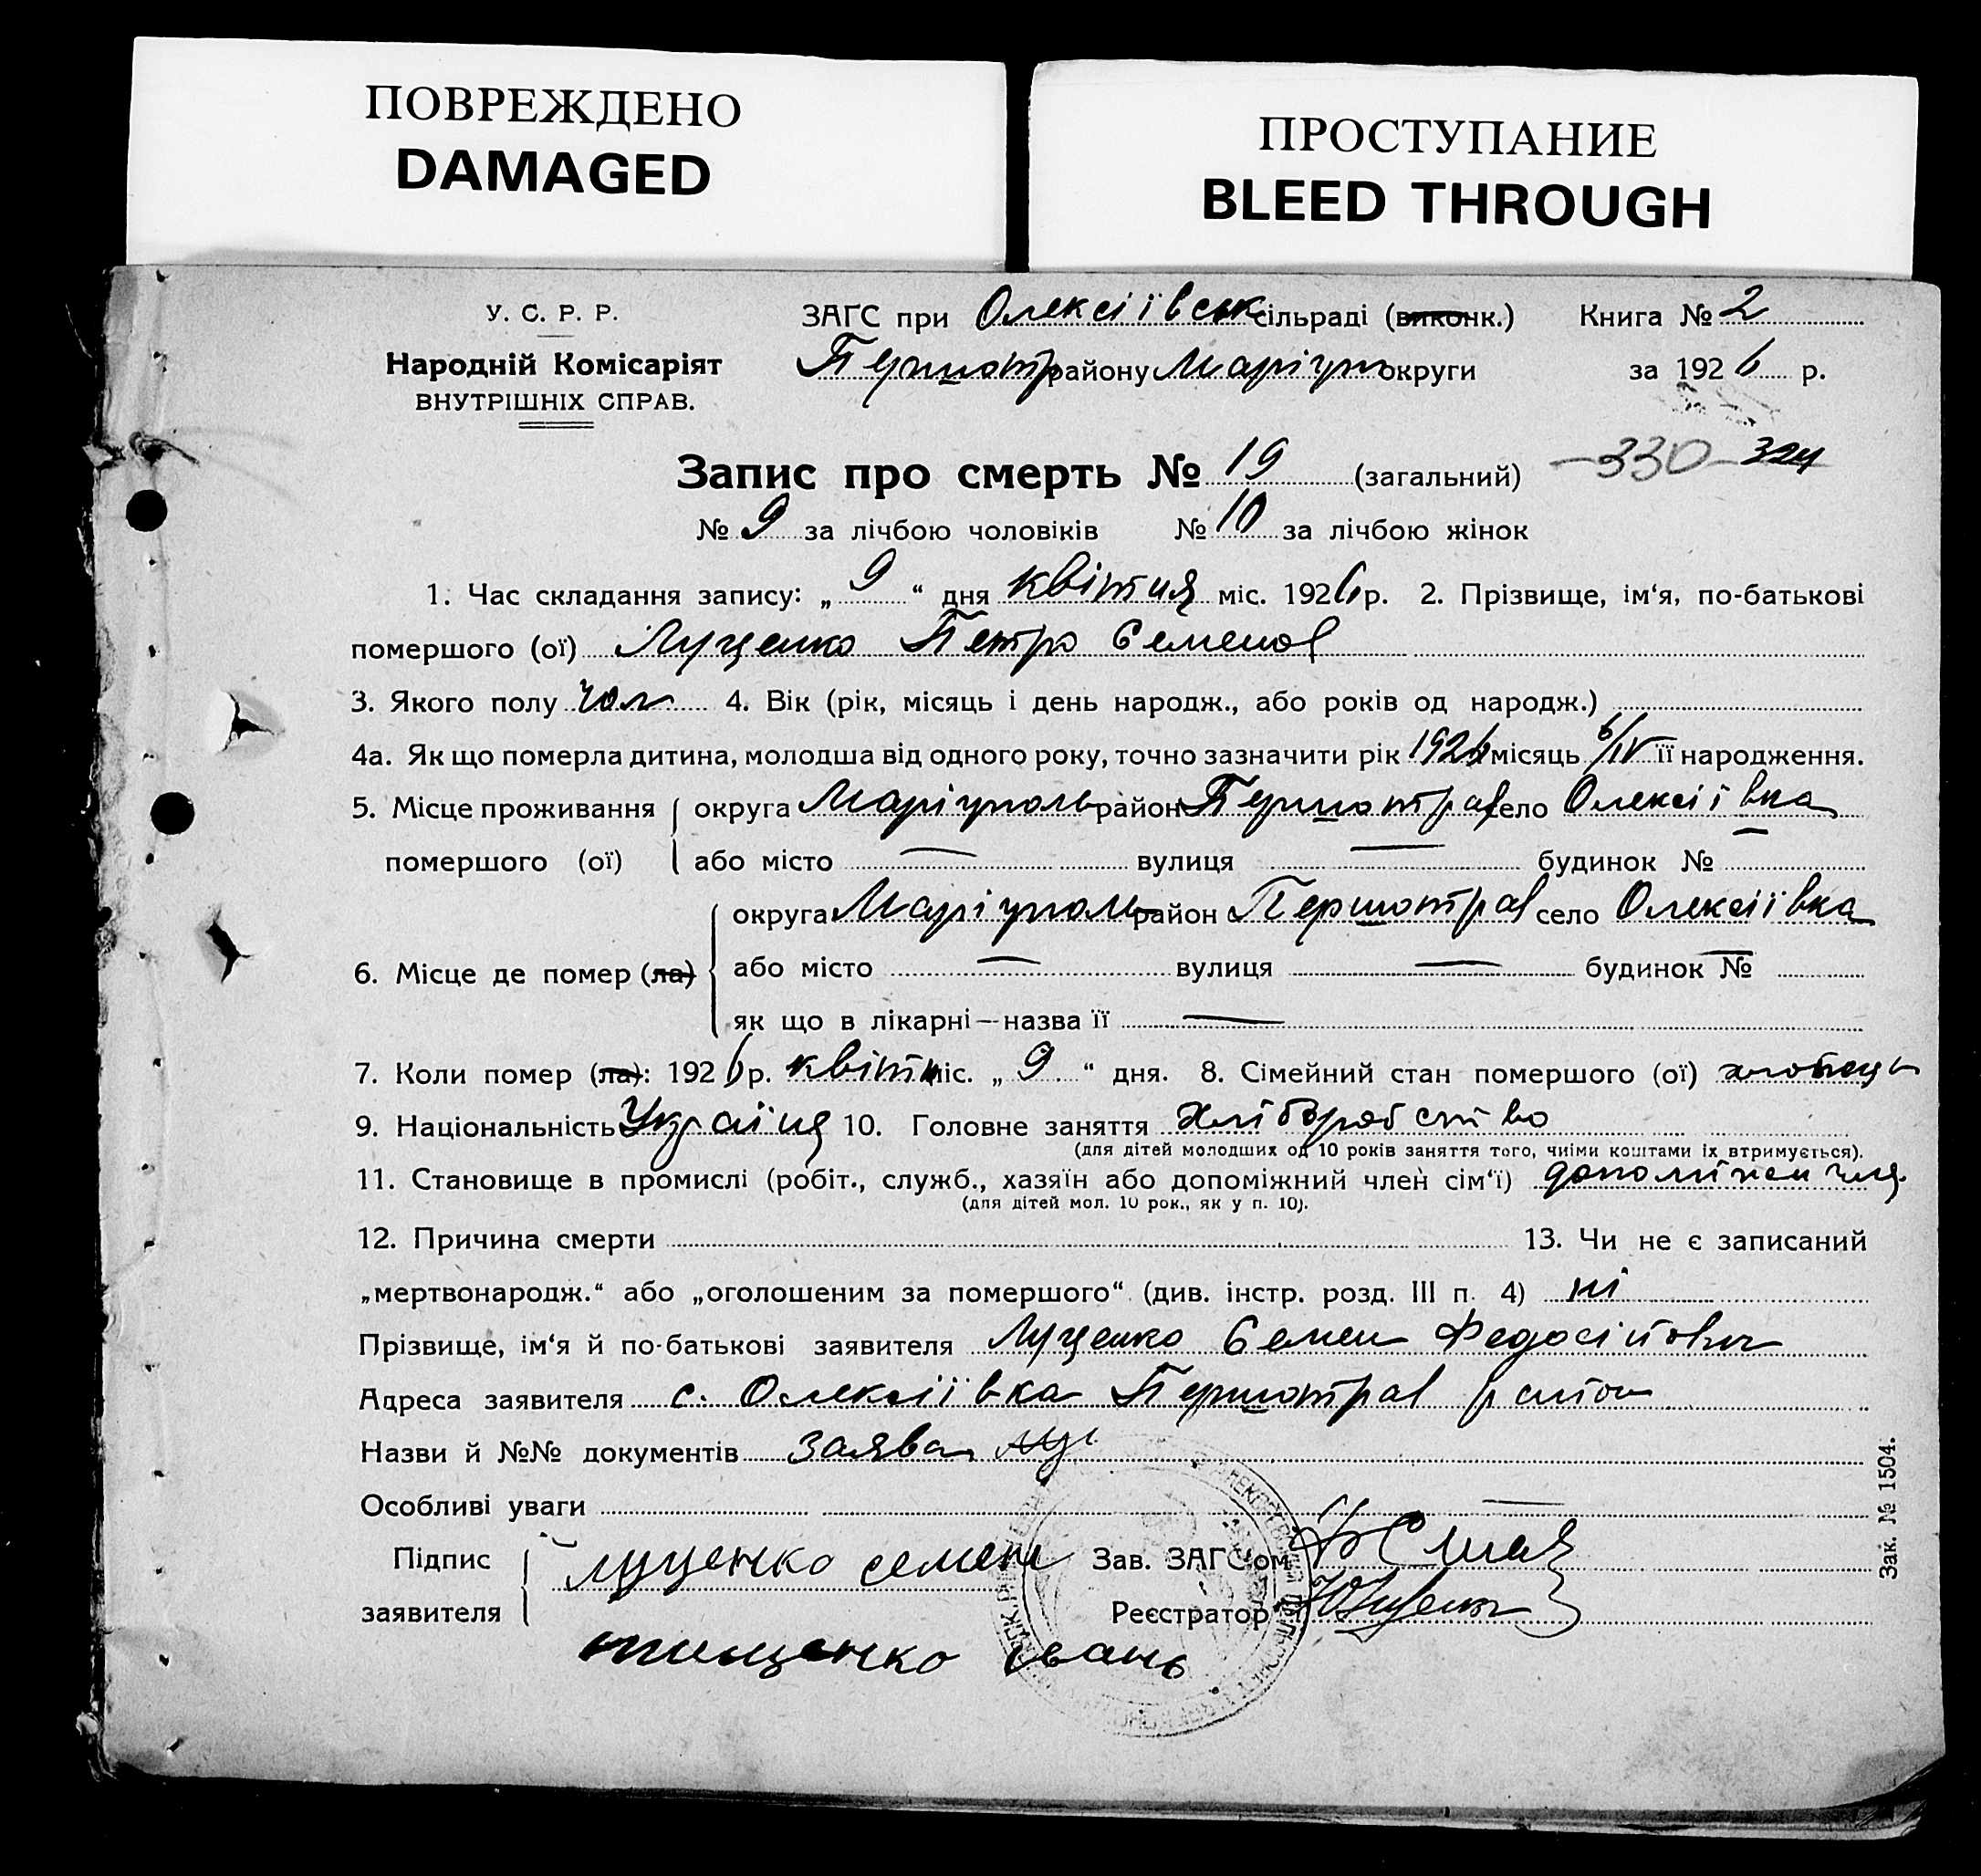 ПОВРЕЖДЕНО
DAMAGED
ПРОСТУПАНИЕ
BLEED THROUGH
У. С. Р. Р.
Народній Комісаріят
ВНУТРІШНІХ СПРАВ.
ЗАГС при Олексіївськ сільраді (виконк.) Книга № 2
Першотр району Маріуп округи за 1926 р.
Запис про смерть № 19 (загальний) –330– 324
№ 9 за лічбою чоловіків № 10 за лічбою жінок
1. Час складання запису: „ 9 “ дня квітня міс. 1926 р. 2. Прізвище, ім‘я, по-батькові
помершого (ої) Луценко Петро Семенов
3. Якого полу чол 4. Вік (рік, місяць і день народж., або років од народж.)
4а. Як що померла дитина, молодша від одного року, точно зазначити рік 1926 місяць 6/IV її народження.
5. Місце проживання округа Маріуполь район Першотрав село Олексіївка
помершого (ої) або місто — вулиця — будинок № —
округа Маріуполь район Першотрав село Олексіївка
6. Місце де помер (ла) або місто — вулиця — будинок № —
як що в лікарні—назва її —
7. Коли помер (ла): 1926 р. квітн міс. „ 9 “ дня. 8. Сімейний стан помершого (ої) хлопець
9. Національність Україця 10. Головне заняття Хліборобство
(для дітей молодших од 10 років заняття того, чиїми коштами їх втримується).
11. Становище в промислі (робіт., служб., хазяїн або допоміжний член сім‘ї) допоміжн член
(для дітей мол. 10 рок., як у п. 10).
12. Причина смерти 13. Чи не є записаний
„мертвонародж.“ або „оголошеним за помершого“ (див. інстр. розд. III п. 4) ні
Прізвище, ім‘я й по-батькові заявителя Луценко Семен Федосійович
Адреса заявителя с. Олексіївка Першотрав район
Назви й №№ документів заява
Особливі уваги —
Підпис луценко семен Зав. ЗАГС‘ом
заявителя Реєстратор
тищенко івань
Зак. № 1504.